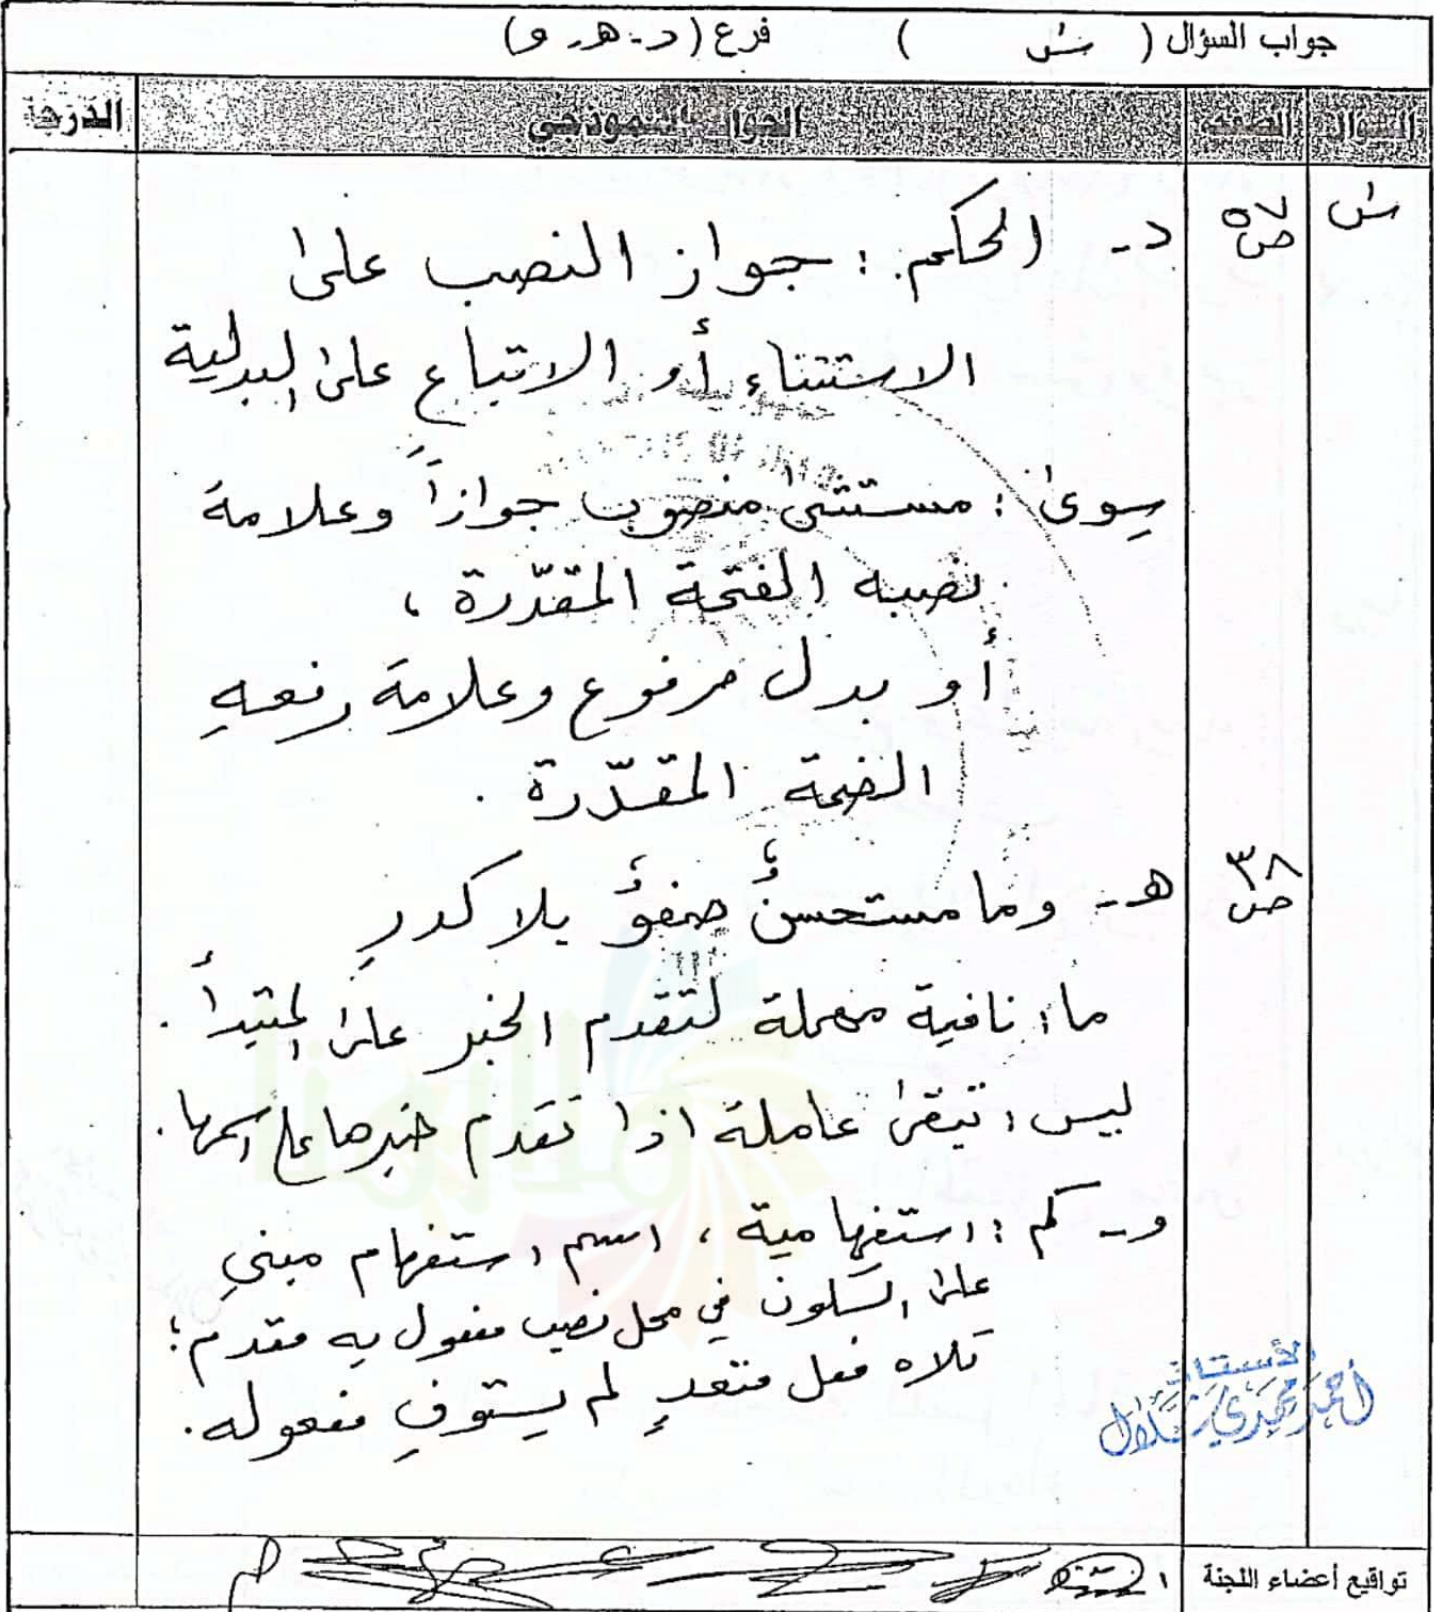 جواب السؤال ( س ) فرع (د. هـ. و)
السؤال الصفحة الجواب النموذجي الدرجة
س ص٥٧ د- الحكم : جواز النصب على
الاستثناء أو الاتباع على البدلية
سِوى : مستثنى منصوب جوازاً وعلامة
نصبه الفتحة المقدّرة ،
أو بدل مرفوع وعلامة رفعهِ
الضمة المقدّرة .
ص٣٨ هـ- وما مستحسنٌ صفوٌ بلا كدرِ
ما : نافية مهملة لتقدم الخبر على المبتدأ .
ليس : تبقى عاملة اذا تقدم خبرها على اسمها .
و- كم : استفهامية ، اسم استفهام مبني
على السكون في محل نصب مفعول به مقدم ؛
تلاه فعل متعدٍ لم يستوفِ مفعوله .
الأستاذ
أحمد مهدي شلال
تواقيع أعضاء اللجنة